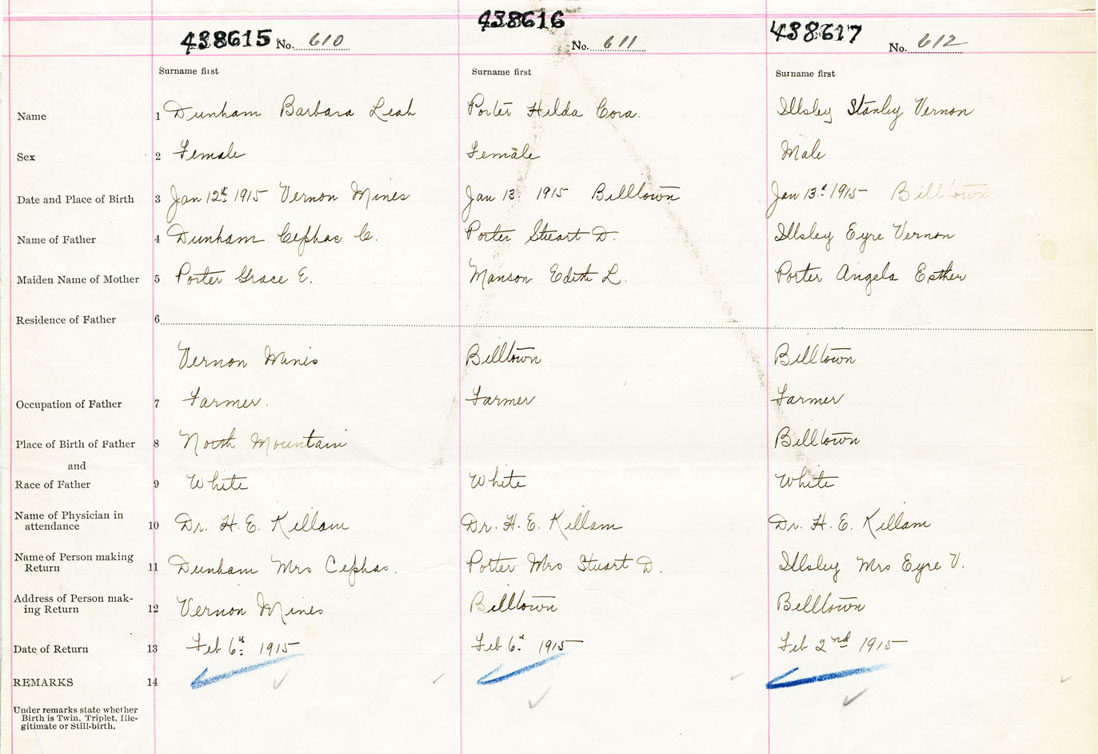 438615 No. 610 438616 No. 611 438617 No. 612
Surname first Surname first Surname first
Name 1 Dunham Barbara Leah Porter Hilda Cora. Illsley Stanley Vernon
Sex 2 Female Female Male
Date and Place of Birth 3 Jan 12th 1915 Vernon Mines Jan 13 1915 Billtown Jan 13th 1915 Billtown
Name of Father 4 Dunham Cephas C. Porter Stuart D. Illsley Eyre Vernon
Maiden Name of Mother 5 Porter Grace E. Manson Edith L. Porter Angela Esther
Residence of Father 6
Vernon Mines Billtown Billtown
Occupation of Father 7 Farmer. Farmer Farmer
Place of Birth of Father 8 North Mountain Billtown
and
Race of Father 9 White White White
Name of Physician in
attendance 10 Dr. H. E. Killam Dr. H. E. Killam Dr. H. E. Killam
Name of Person making
Return 11 Dunham Mrs Cephas. Porter Mrs Stuart D. Illsley Mrs Eyre V.
Address of Person mak-
ing Return 12 Vernon Mines Billtown Billtown
Date of Return 13 Feb 6th 1915 Feb 6th 1915 Feb 2nd 1915
REMARKS 14
Under remarks state whether
Birth is Twin, Triplet, Ille-
gitimate or Still-birth.